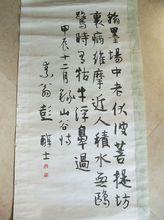 翰墨場中老伏波菩提坊
裏病維摩近人積水無鷗
鷺時有歸牛浮鼻過
甲辰十二月錄山谷詩
素翁彭醇士